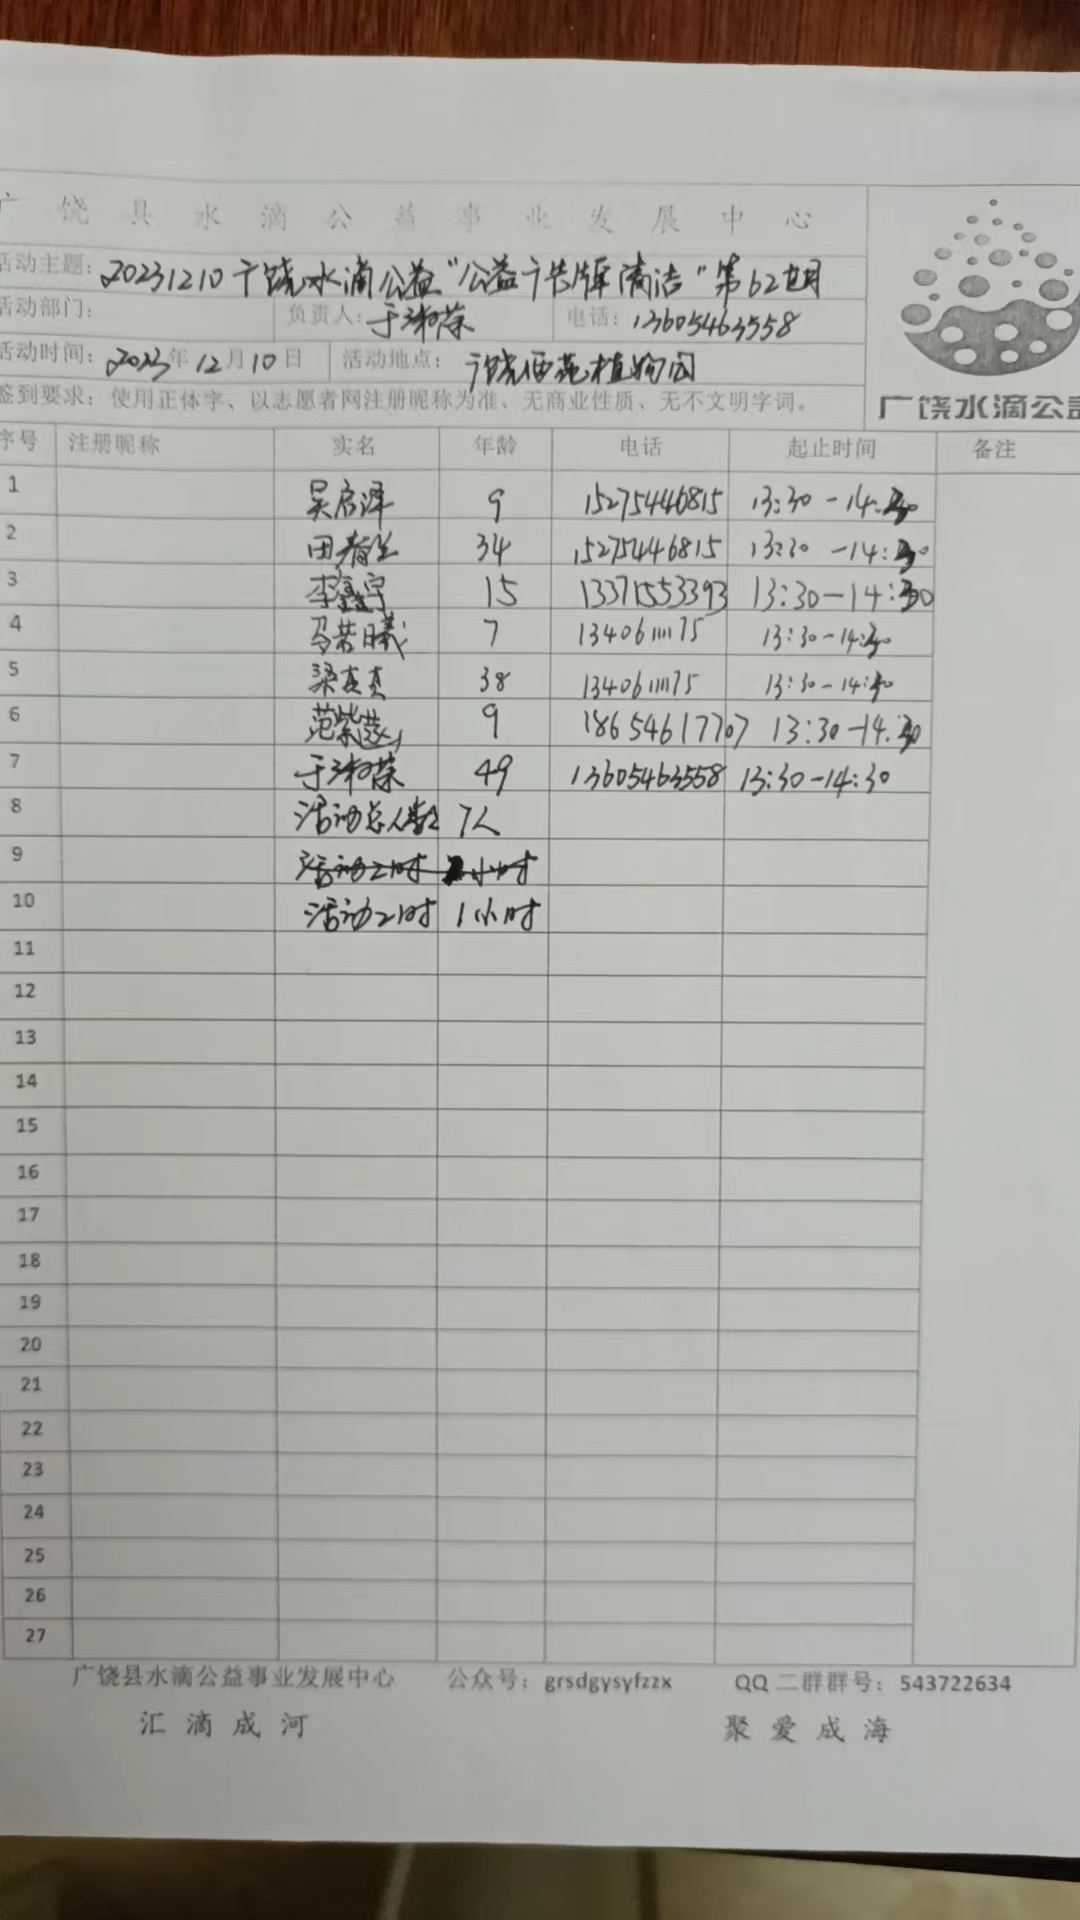 广饶县水滴公益事业发展中心
活动主题：20231210广饶水滴公益“公益广告牌清洁”第62期
活动部门： 负责人：于淑荣 电话：13605463558
活动时间：2023年12月10日 活动地点：广饶西苑植物园
签到要求：使用正体字、以志愿者网注册昵称为准、无商业性质、无不文明字词。
广饶水滴公益
序号 注册昵称 实名 年龄 电话 起止时间 备注
1 吴启泽 9 15275446815 13:30-14:30
2 田春兰 34 15275446815 13:30-14:30
3 李鑫宇 15 13371553393 13:30-14:30
4 马若曦 7 13406111175 13:30-14:30
5 梁真真 38 13406111175 13:30-14:30
6 范紫 9 18654617707 13:30-14:30
7 于淑荣 49 13605463558 13:30-14:30
8 活动总人数 7人
9 活动工时 小时
10 活动工时 1小时
11
12
13
14
15
16
17
18
19
20
21
22
23
24
25
26
27
广饶县水滴公益事业发展中心 公众号：grsdgysyfzzx QQ二群群号：543722634
汇滴成河 聚爱成海